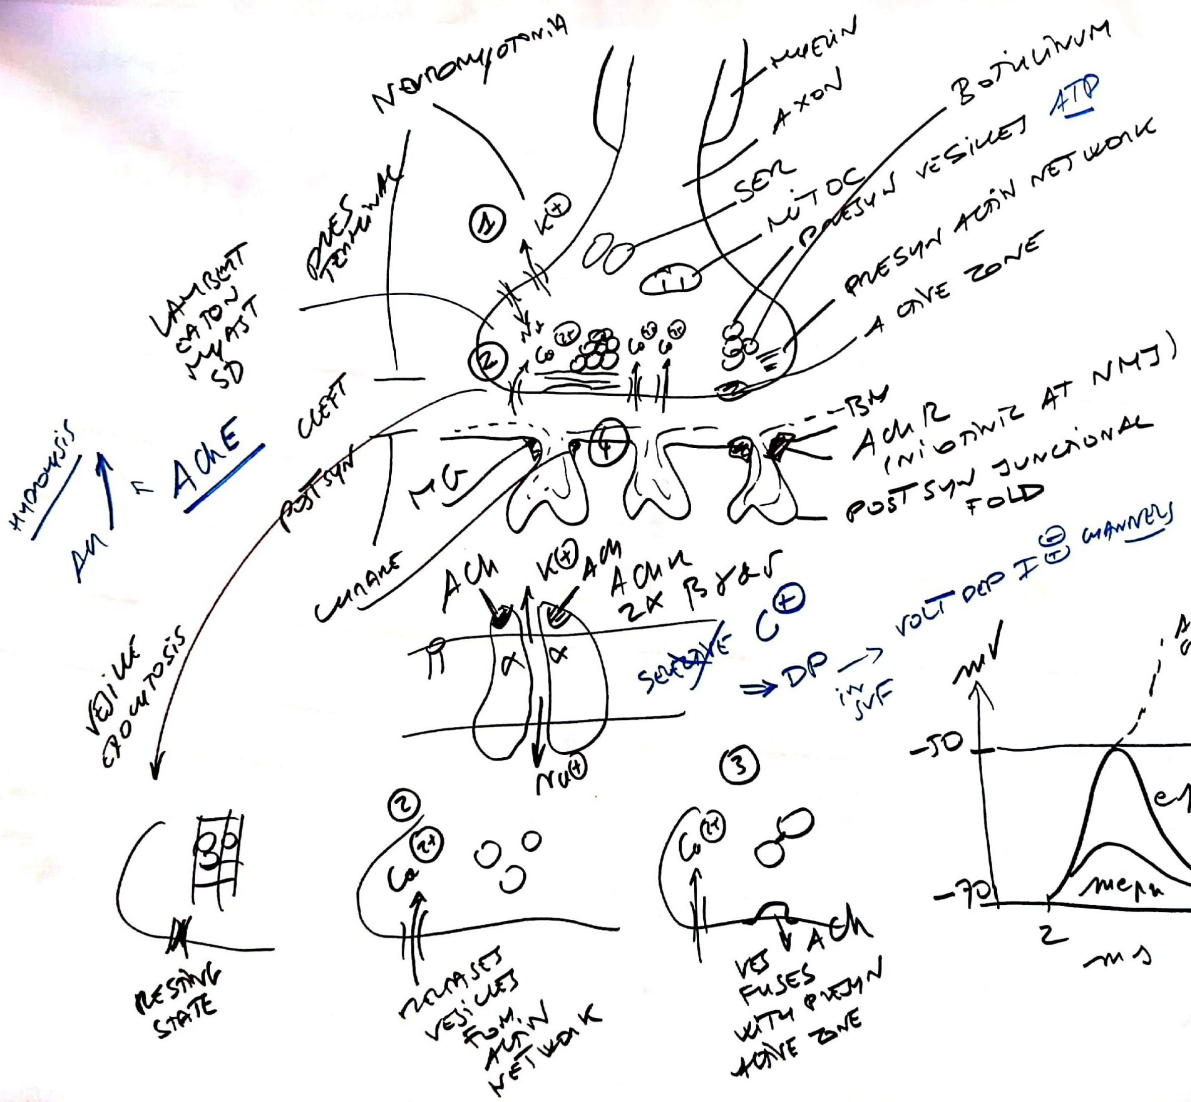 NEUROMYOTONIA
MYELIN
AXON
BOTULINUM
SER
MITOC
PRESYN VESICLES ATP
PRESYN ACTIN NETWORK
ACTIVE ZONE
1
K+
PRES
TERMINAL
LAMBERT
EATON
MYAST
SD
Na
2
Ca 2+
Ca 2+
Ca 2+
CLEFT
BM
AChR
(NICOTINIC AT NMJ)
POSTSYN JUNCTIONAL
FOLD
4
HYDROLYSIS
AChE
POSTSYN
MG
CURARE
ACh
K+
ACh
AChR
2α β γ δ
α
α
Na+
C+
⇒ DP
in
VOLT DEP I
CHANNELS
VESICLE
EXOCYTOSIS
mV
-50
-70
mepp
2
ms
RESTING
STATE
2
Ca 2+
RELEASES
VESICLES
FROM
ACTIN
NETWORK
3
Ca 2+
ACh
VES
FUSES
WITH PRESYN
ACTIVE ZONE